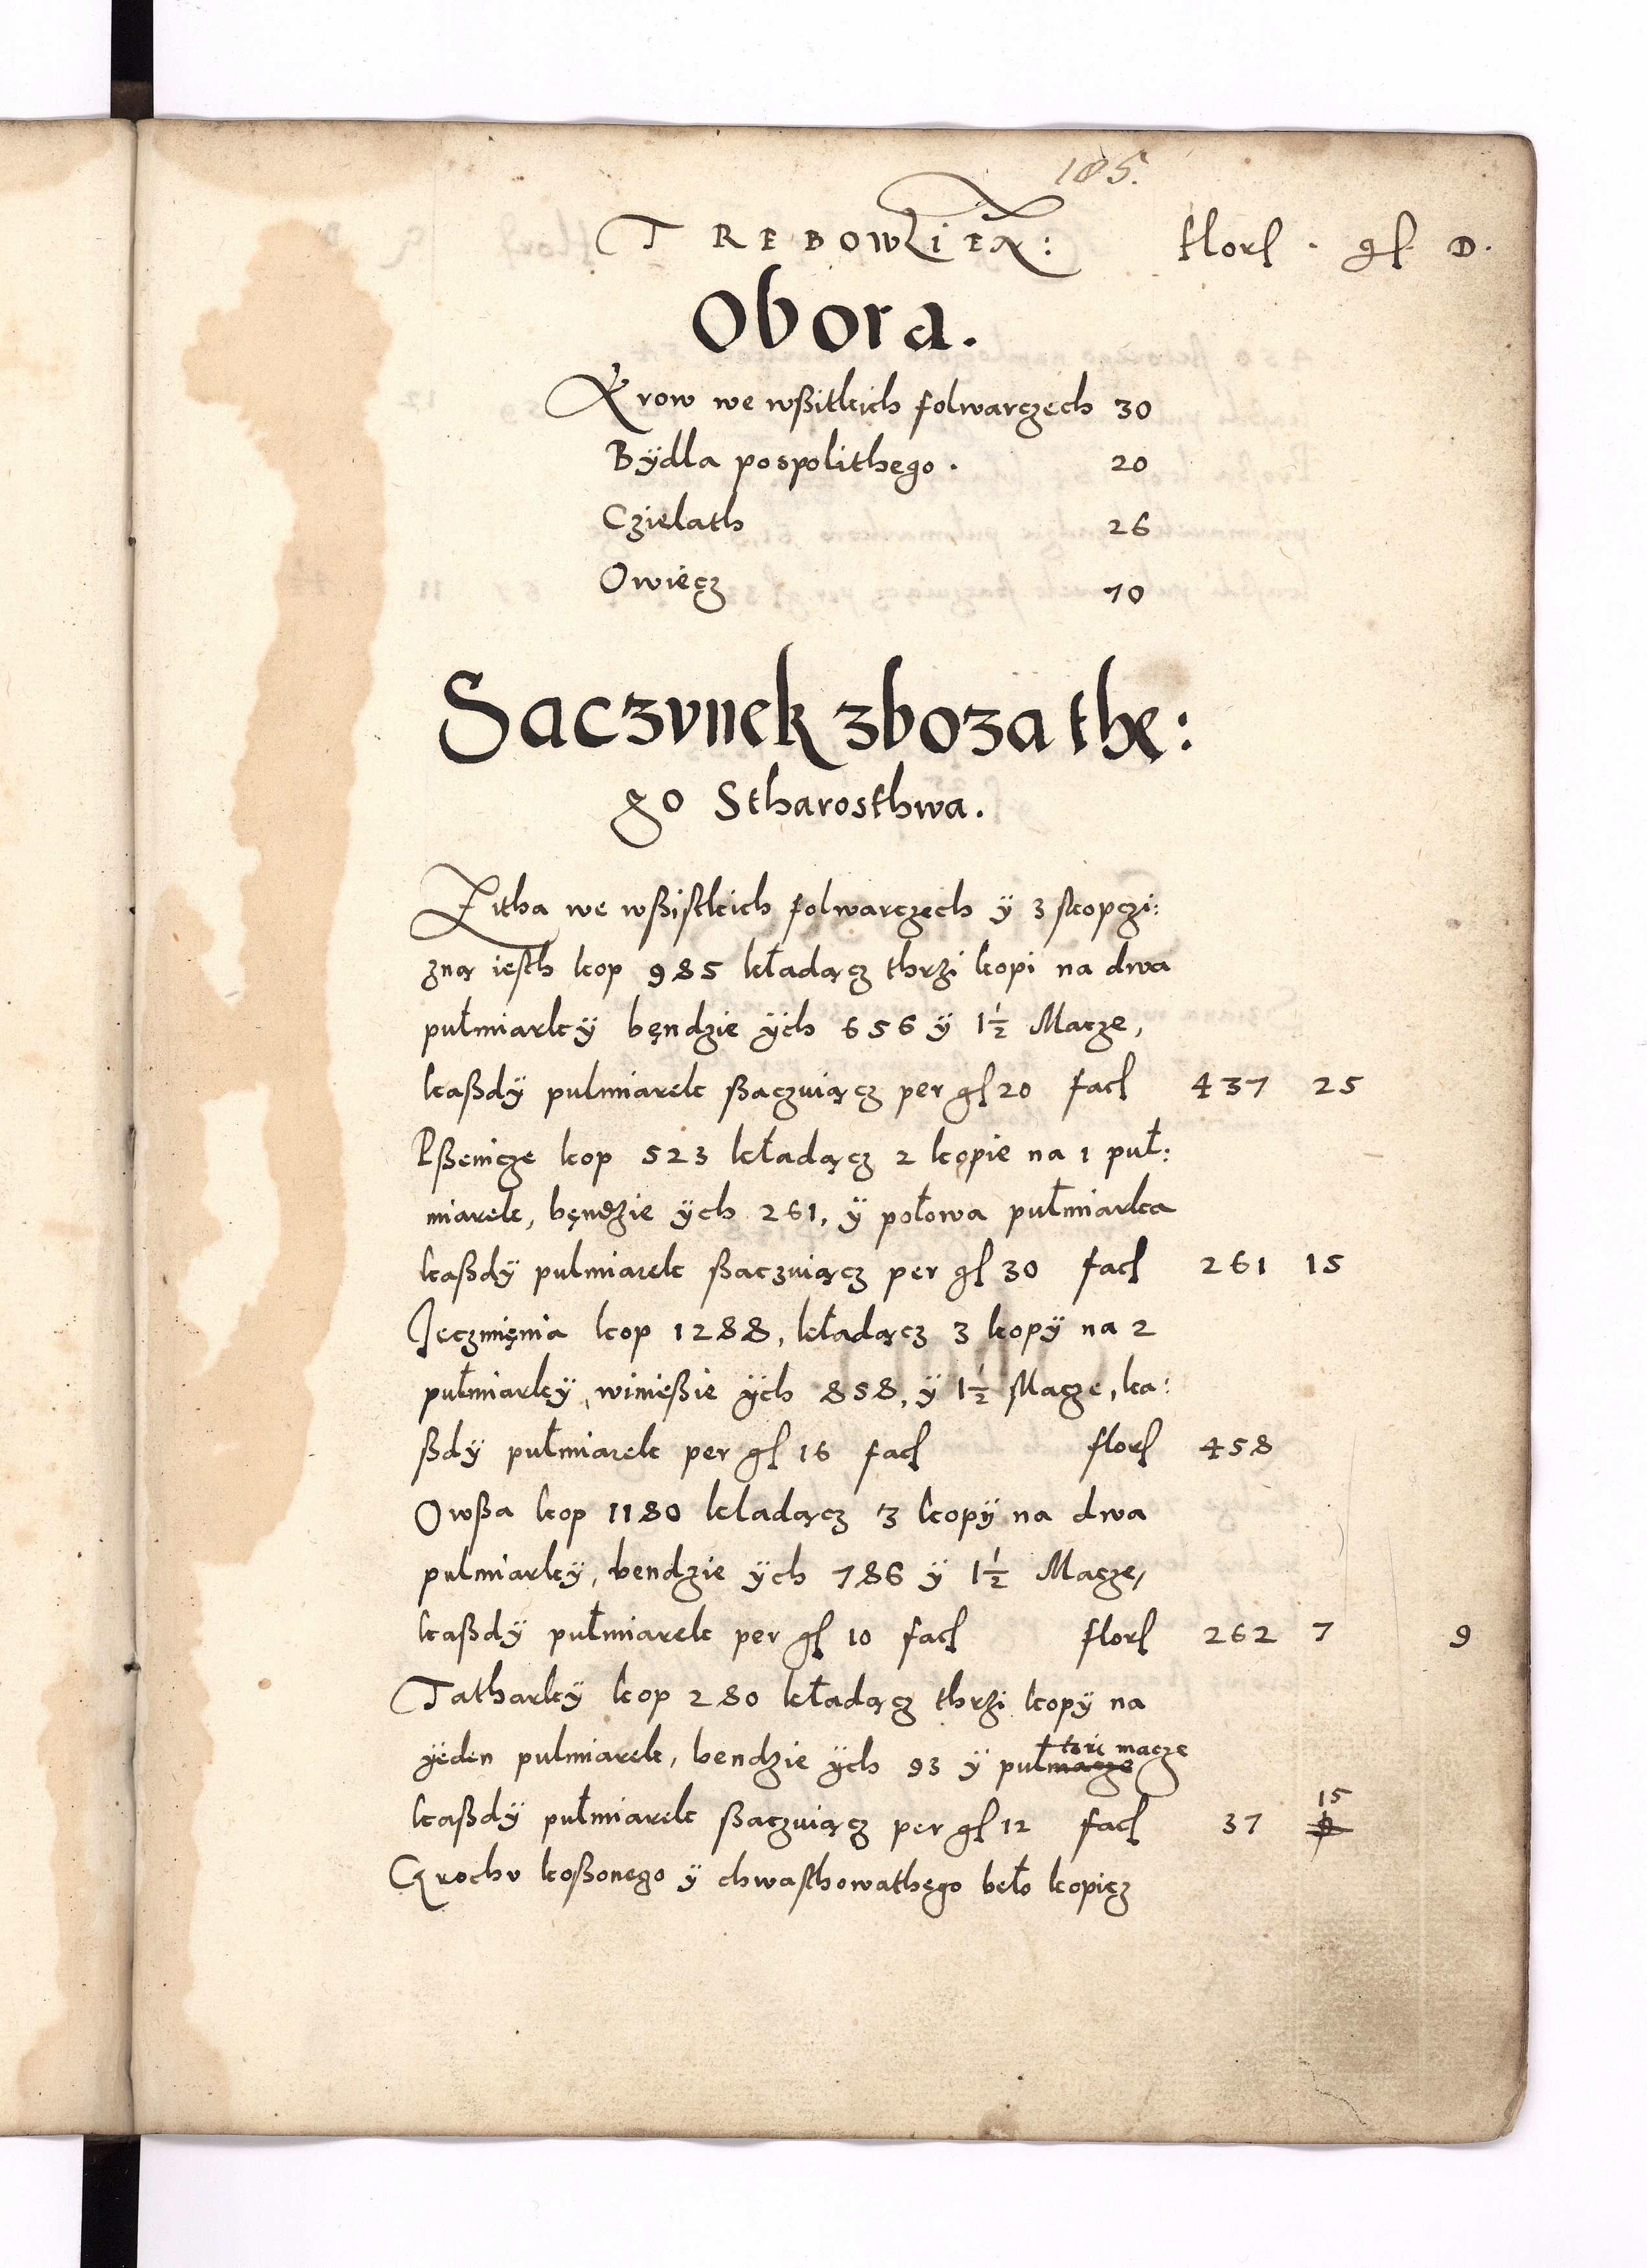 185.
TREBOWLIEN: florſ. gſ D.
Obora.
Krow we wßitkich folwarczech 30
Bÿdla pospolithego. 20
Czielath 26
Owięcz 70
Saczunek zboza the:
go Stharosthwa.
Zitha we wßistkich folwarczech ÿ z skopczi:
zną iesth kop 985 kładącz thrzi kopi na dwa
pułmiarkÿ będzie ÿch 656 ÿ 1½ Macze,
kaßdÿ pulmiarek ßaczuiącz per gſ 20 facſ 437 25
Pßenicze kop 523 kładącz 2 kopie na 1 puł:
miarek, bęndzie ÿch 261, ÿ połowa pułmiarka
kaßdÿ pulmiarek ßaczuiącz per gſ 30 facſ 261 15
Jeczmięnia kop 1288, kładącz 3 kopÿ na 2
pułmiarkÿ, winießie ÿch 858, ÿ 1½ Macze, ka:
ßdÿ pułmiarek per gſ 16 facſ florſ 458
Owßa kop 1180 kladącz 3 kopÿ na dwa
pulmiarkÿ, bendzie ÿch 786 ÿ 1½ Macze,
kaßdÿ pułmiarek per gſ 10 facſ florſ 262 7 9
Tatharkÿ kop 280 kładącz thrzi kopÿ na
ÿeden pulmiarek, bendzie ÿch 93 ÿ pułtori macze
kaßdÿ pułmiarek ßaczuiącz per gſ 12 facſ 37 15
Grochu koßonego ÿ chwasthowathego beło kopięcz